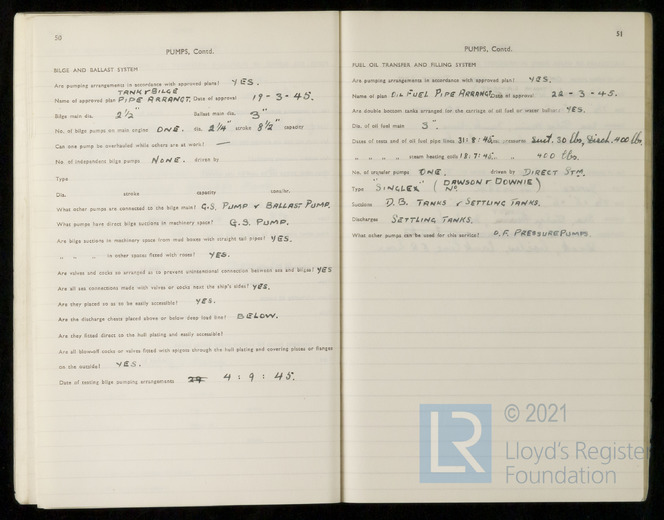 50
PUMPS, Contd.
BILGE AND BALLAST SYSTEM
Are pumping arrangements in accordance with approved plans? YES.
TANK & BILGE
Name of approved plan PIPE ARRANGT. Date of approval 19-3-45.
Bilge main dia. 2 1/2" Ballast main dia. 3"
No. of bilge pumps on main engine ONE. dia. 2 1/4" stroke 8 1/2" capacity
Can one pump be overhauled while others are at work? —
No. of independent bilge pumps NONE. driven by
Type
Dia. stroke capacity
What other pumps are connected to the bilge main? G.S. PUMP & BALLAST PUMP.
What pumps have direct bilge suctions in machinery space? G.S. PUMP.
Are bilge suctions in machinery space from mud boxes with straight tail pipes? YES.
" " " in other spaces fitted with roses? YES.
Are valves and cocks so arranged as to prevent unintentional connection between sea and bilges? YES
Are all sea connections made with valves or cocks next the ship's sides? YES.
Are they placed so as to be easily accessible? YES.
Are the discharge chests placed above or below deep load line? BELOW.
Are they fitted direct to the hull plating and easily accessible?
Are all blowoff cocks or valves fitted with spigots through the hull plating and covering plates or flanges
on the outside? YES.
Date of testing bilge pumping arrangements 29 4:9:45.
51
PUMPS, Contd.
FUEL OIL TRANSFER AND FILLING SYSTEM
Are pumping arrangements in accordance with approved plan? YES.
Name of plan OIL FUEL PIPE ARRANGT. Date of approval 22-3-45.
Are double bottom tanks arranged for the carriage of oil fuel or water ballast? YES.
Dia. of oil fuel main 3".
Dates of tests and of oil fuel pipe lines 31:8:45. Test pressures Suct. 30 lbs, Disch. 400 lbs.
" " " " steam heating coils 18:7:45. " " 400 lbs.
No. of transfer pumps ONE. driven by DIRECT STM.
Type "SINGLEX" (DAWSON & DOWNIE)
Suctions D.B. TANKS & SETTLING TANKS.
Discharges SETTLING TANKS.
What other pumps can be used for this service? O.F. PRESSURE PUMPS.
LR
© 2021
Lloyd's Register
Foundation